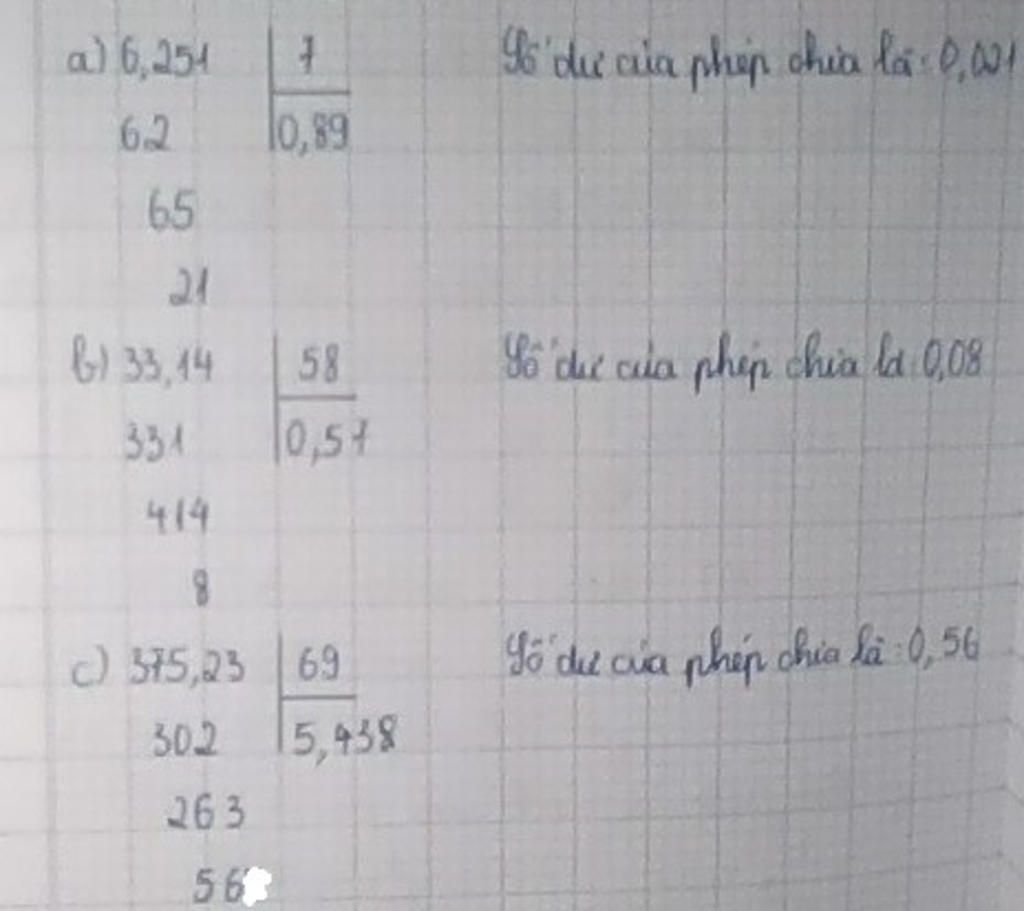 a) 6,251 7 Số dư của phép chia là: 0,021
62 0,89
65
21
b) 33,14 58 Số dư của phép chia là 0,08
331 0,57
414
8
c) 375,23 69 Số dư của phép chia là: 0,56
302 5,438
263
56